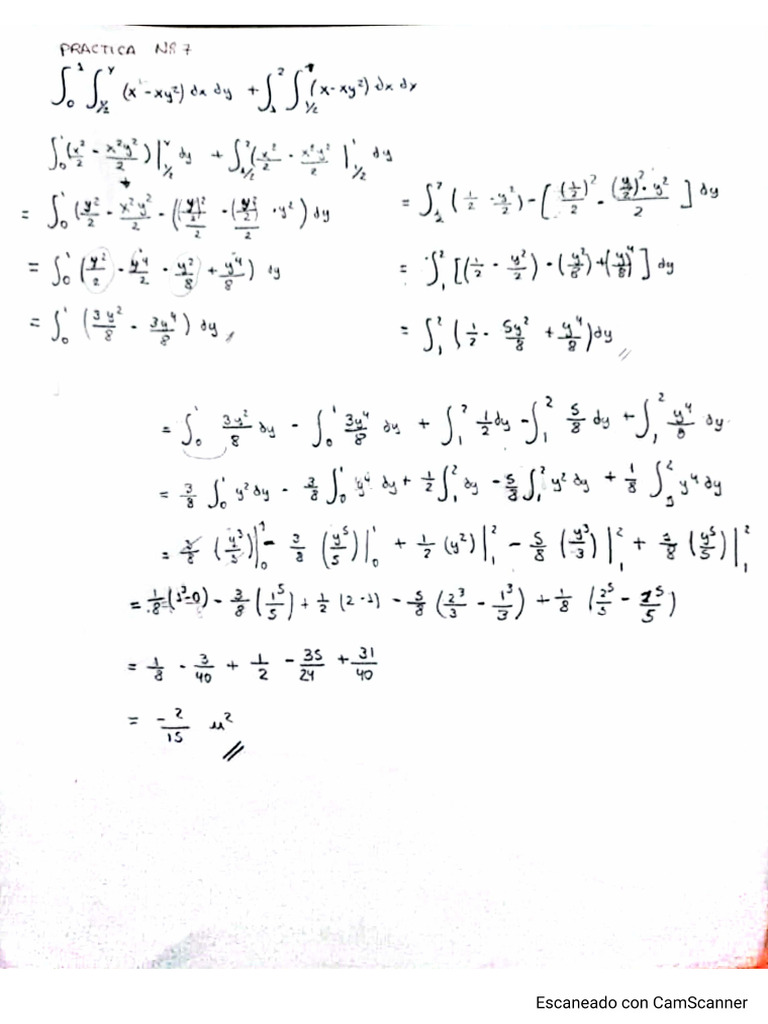 PRACTICA Nº 7
∫₀¹ ∫_{y/2}^{y} (x - xy²) dx dy + ∫₁² ∫_{1/2}^{1} (x - xy²) dx dy
∫₀¹ (x²/2 - x²y²/2) |_{y/2}^{y} dy + ∫_{1/2}^{2} (x²/2 - x²y²/2 |_{1/2}^{1} dy
= ∫₀¹ (y²/2 - x²y²/2 - ((y/2)²/2 - (y/2)²/2 · y²) dy
= ∫₁² (1/2 - y²/2) - [(1/2)²/2 - (y/2)² · y²/2] dy
= ∫₀¹ (y²/2 - y⁴/2 - y²/8 + y⁴/8) dy
= ∫₁² [(1/2 - y²/2) - (y²/8) + (y⁴/8)] dy
= ∫₀¹ (3y²/8 - 3y⁴/8) dy //
= ∫₁² (1/2 - 5y²/8 + y⁴/8) dy //
= ∫₀¹ 3y²/8 dy - ∫₀¹ 3y⁴/8 dy + ∫₁² 1/2 dy - ∫₁² 5/8 dy + ∫₁² y⁴/8 dy
= 3/8 ∫₀¹ y² dy - 3/8 ∫₀¹ y⁴ dy + 1/2 ∫₁² dy - 5/8 ∫₁² y² dy + 1/8 ∫₁² y⁴ dy
= 3/8 (y³/3)|₀¹ - 3/8 (y⁵/5)|₀¹ + 1/2 (y²)|₁² - 5/8 (y³/3)|₁² + 1/8 (y⁵/5)|₁²
= 1/8 (1³-0) - 3/8 (1⁵/5) + 1/2 (2-1) - 5/8 (2³/3 - 1³/3) + 1/8 (2⁵/5 - 1⁵/5)
= 1/8 - 3/40 + 1/2 - 35/24 + 31/40
= -2/15 u² //
Escaneado con CamScanner